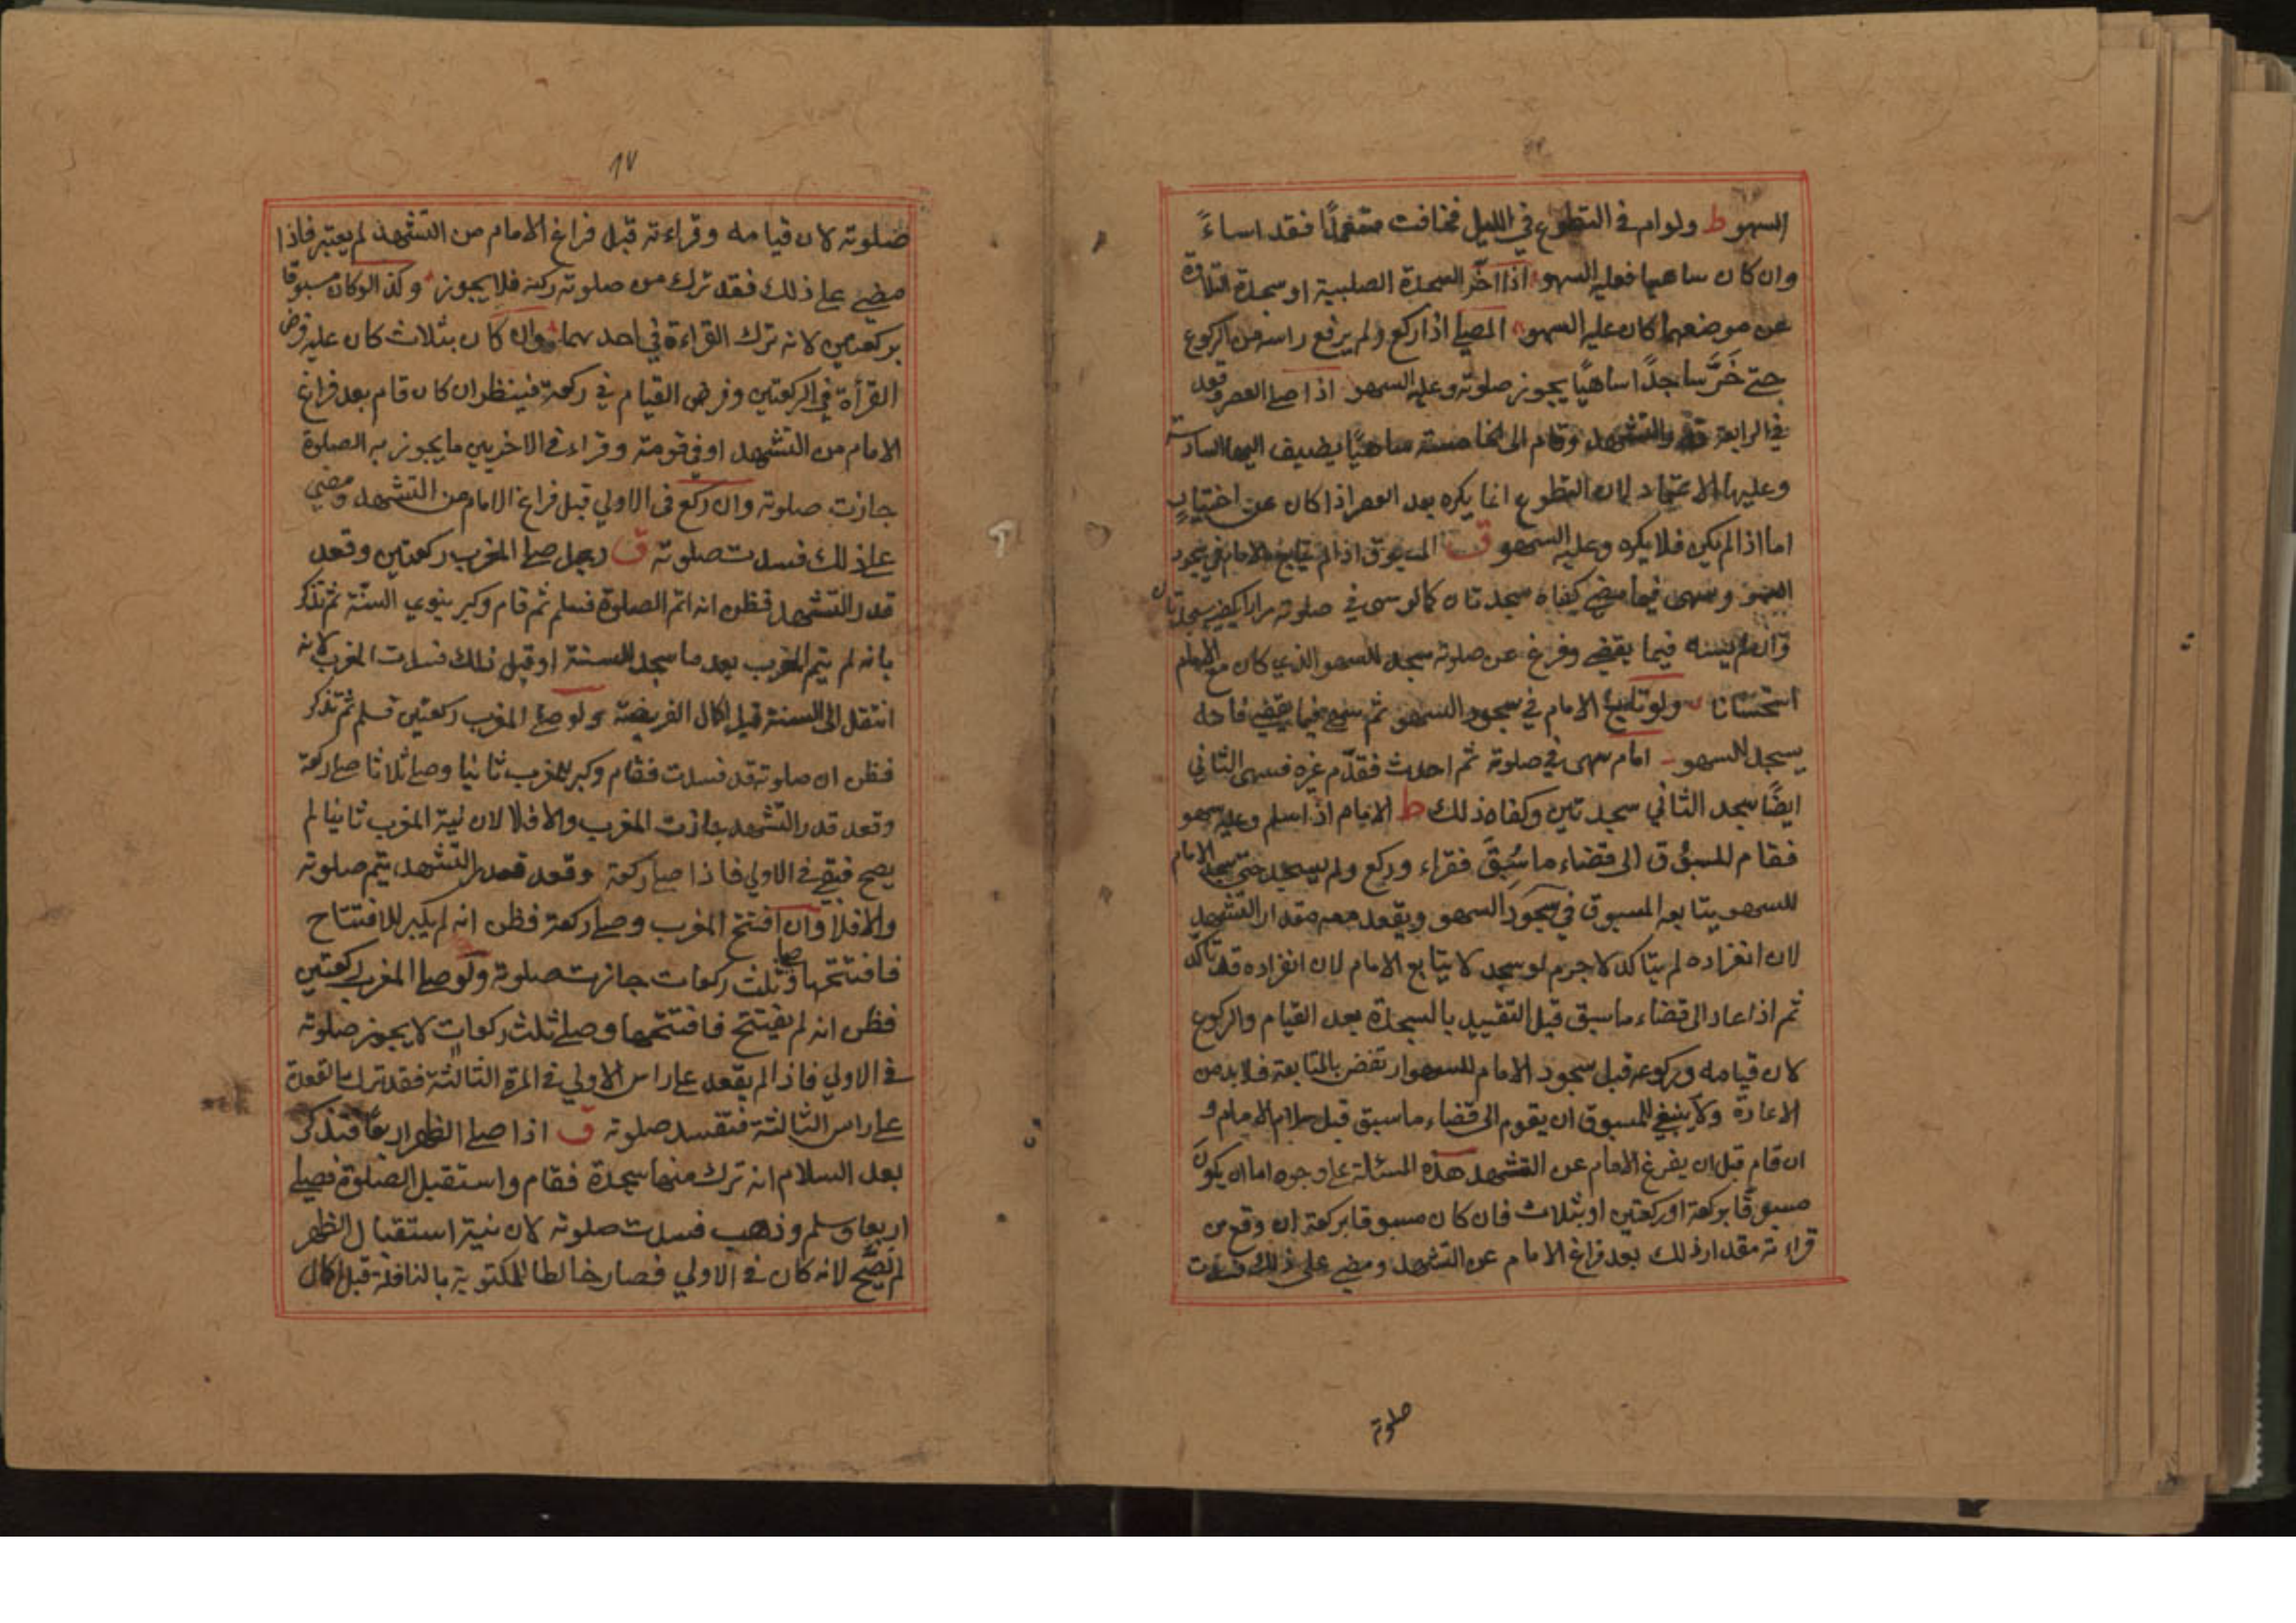 السهو ط ولو ام في التطوع في الليل فخافت متعمدًا فقد اساءً
وان كان ساهيا فعليه السهو اذا اخّر السجدة الصلبية او سجدة التلاوة
عن موضعهما كان عليه السهو المصلي اذا ركع ولم يرفع راسه من الركوع
حتى خَرَّ ساجدًا ساهيًا يجوز صلوته وعليه السهو اذا صلي العصر وقعد
في الرابعة قدر التشهد وقام الى الخامسة ساهيًا يضيف اليها السادسة
وعليه الاعتماد لان التطوع انما يكره بعد العصر اذا كان عن اختيار
اما اذا لم يكن فلا يكره وعليه السهو ق المسبوق اذا لم يتابع الامام في سجود
السهو وسهى فيما يقضي كفاه سجدتان كما لو سهى في صلوته مرارا يكفيه سجدتان
وان لم يسه فيما يقضي وفرغ عن صلوته سجد للسهو الذي كان مع الامام
استحسانا ولو تابع الامام في سجود السهو ثم سهى فيما يقضي فانه
يسجد للسهو امام سهى في صلوته ثم احدث فقدّم غيره فسهى الثاني
ايضًا سجد الثاني سجدتين وكفاه ذلك ط الامام اذا سلم وعليه سهو
فقام المسبوق الى قضاء ما سُبِقَ فقراء وركع ولم يسجد حتى سجد الامام
للسهو يتابعه المسبوق في سجود السهو ويقعد معه مقدار التشهد
لان انفراده لم يتاكد لا جرم لو سجد لا يتابع الامام لان انفراده قد تاكّد
ثم اذا عاد الى قضاء ما سبق قبل التقييد بالسجدة يعد القيام والركوع
لان قيامه وركوعه قبل سجود الامام للسهو ارتفض بالمتابعة فلا بد من
الاعادة ولا ينبغي للمسبوق ان يقوم الى قضاء ما سبق قبل سلام الامام و
ان قام قبل ان يفرغ الامام عن التشهد هذه المسئلة على وجوه اما ان يكون
مسبوقًا بركعة او ركعتين او بثلاث فان كان مسبوقا بركعة ان وقع من
قراءته مقدار ذلك بعد فراغ الامام عن التشهد ومضي على ذلك فسدت
صلوته
١٧
صلوته لان قيامه وقراءته قبل فراغ الامام من التشهد لم يعتبر فاذا
مضي على ذلك فقد ترك من صلوته ركنه فلا يجوز وكذا لو كان مسبوقا
بركعتين لانه ترك القراءة في احدهما وان كان بثلاث كان عليه فرض
القرأة في الركعتين وفرض القيام في ركعة فينظر ان كان قام بعد فراغ
الامام من التشهد او في قومته وقراء في الاخريين ما يجوز به الصلوة
جازت صلوته وان ركع في الاولي قبل فراغ الامام من التشهد ومضي
علي ذلك فسدت صلوته ق رجل صلي المغرب ركعتين وقعد
قدر التشهد فظن انه اتم الصلوة فسلم ثم قام وكبر ينوي السنّة ثم تذكر
بانه لم يتم المغرب بعد ما سجد للسنة او قبل ذلك فسدت المغرب لانه
انتقل الى السنة قبل اكمال الفريضة ولو صلي المغرب ركعتين فسلم ثم تذكر
فظن ان صلوته قد فسدت فقام وكبر للمغرب ثانيا وصلي ثلاثا صلي ركعة
وقعد قدر التشهد جازت المغرب والا فلا لان نية المغرب ثانيا لم
يصح فبقي في الاولي فاذا صلي ركعة وقعد قدر التشهد يتم صلوته
والا فلا وان افتتح المغرب وصلي ركعة فظن انه لم يكبر للافتتاح
فافتتحها وصلي ثلث ركعات جازت صلوته ولو صلي المغرب ركعتين
فظن انه لم يفتتح فافتتحها وصلي ثلث ركعات لا يجوز صلوته
في الاولي فاذا لم يقعد علي راس الاولي في المرة الثالثة فقد ترك القعدة
علي راس الثالثة فتفسد صلوته ق اذا صلي الظهر اربعًا فتذكر
بعد السلام انه ترك منها سجدة فقام واستقبل الصلوة فصلي
اربعا وسلم وذهب فسدت صلوته لان نية استقبال الظهر
لم تصّح لانه كان في الاولي فصار خالطا المكتوبة بالنافلة قبل اكمال